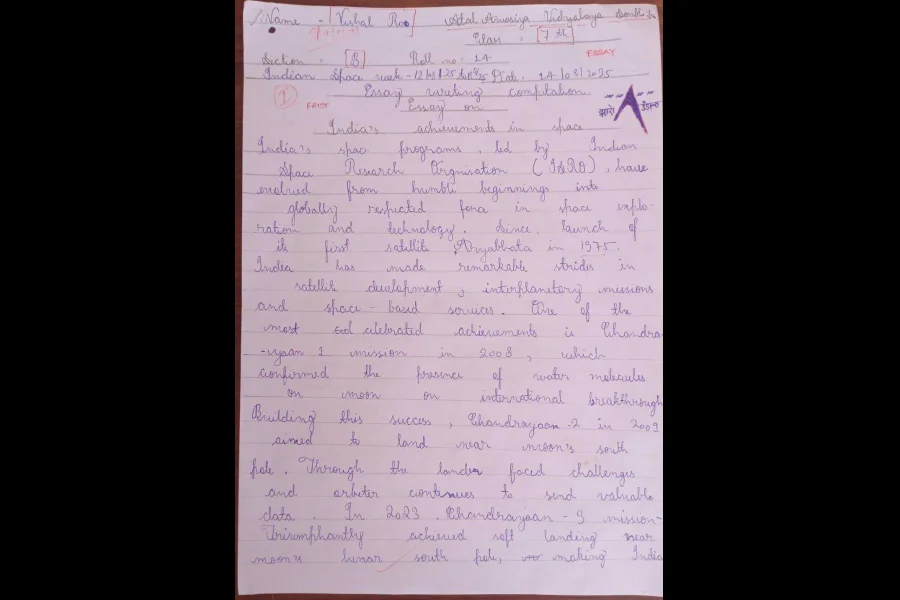 Name - Vishal Rao Atal Aawasiya Vidyalaya South
Class = [7 th]
Section = [B] Roll no: 14
ESSAY
Indian Space week - 12/8/25 Dat. 14/08/2025
Essay writing compitation
I FRIST
Essay on
India's achievements in space
India's space programs, led by Indian
Space Research Orgnisation (ISRO), have
evolved from humble beginnings into
globally respected force in space explo-
ration and technology. Since, launch of
its first satellite Aryabhata in 1975.
India has made remarkable strides in
satellite development, interplanetary missions
and space-based services. One of the
most celebrated achievements is Chandra
-yaan 1 mission in 2008, which
confirmed the presence of water molecules
on moon on international breakthrough
Building this success, Chandrayaan-2 in 2009
aimed to land near moon's south
pole. Through the lander faced challenges
and orbiter continues to send valuable
data. In 2023. Chandrayaan-3 mission-
Triumphantly achieved soft landing near
moon's lunar south pole, making India